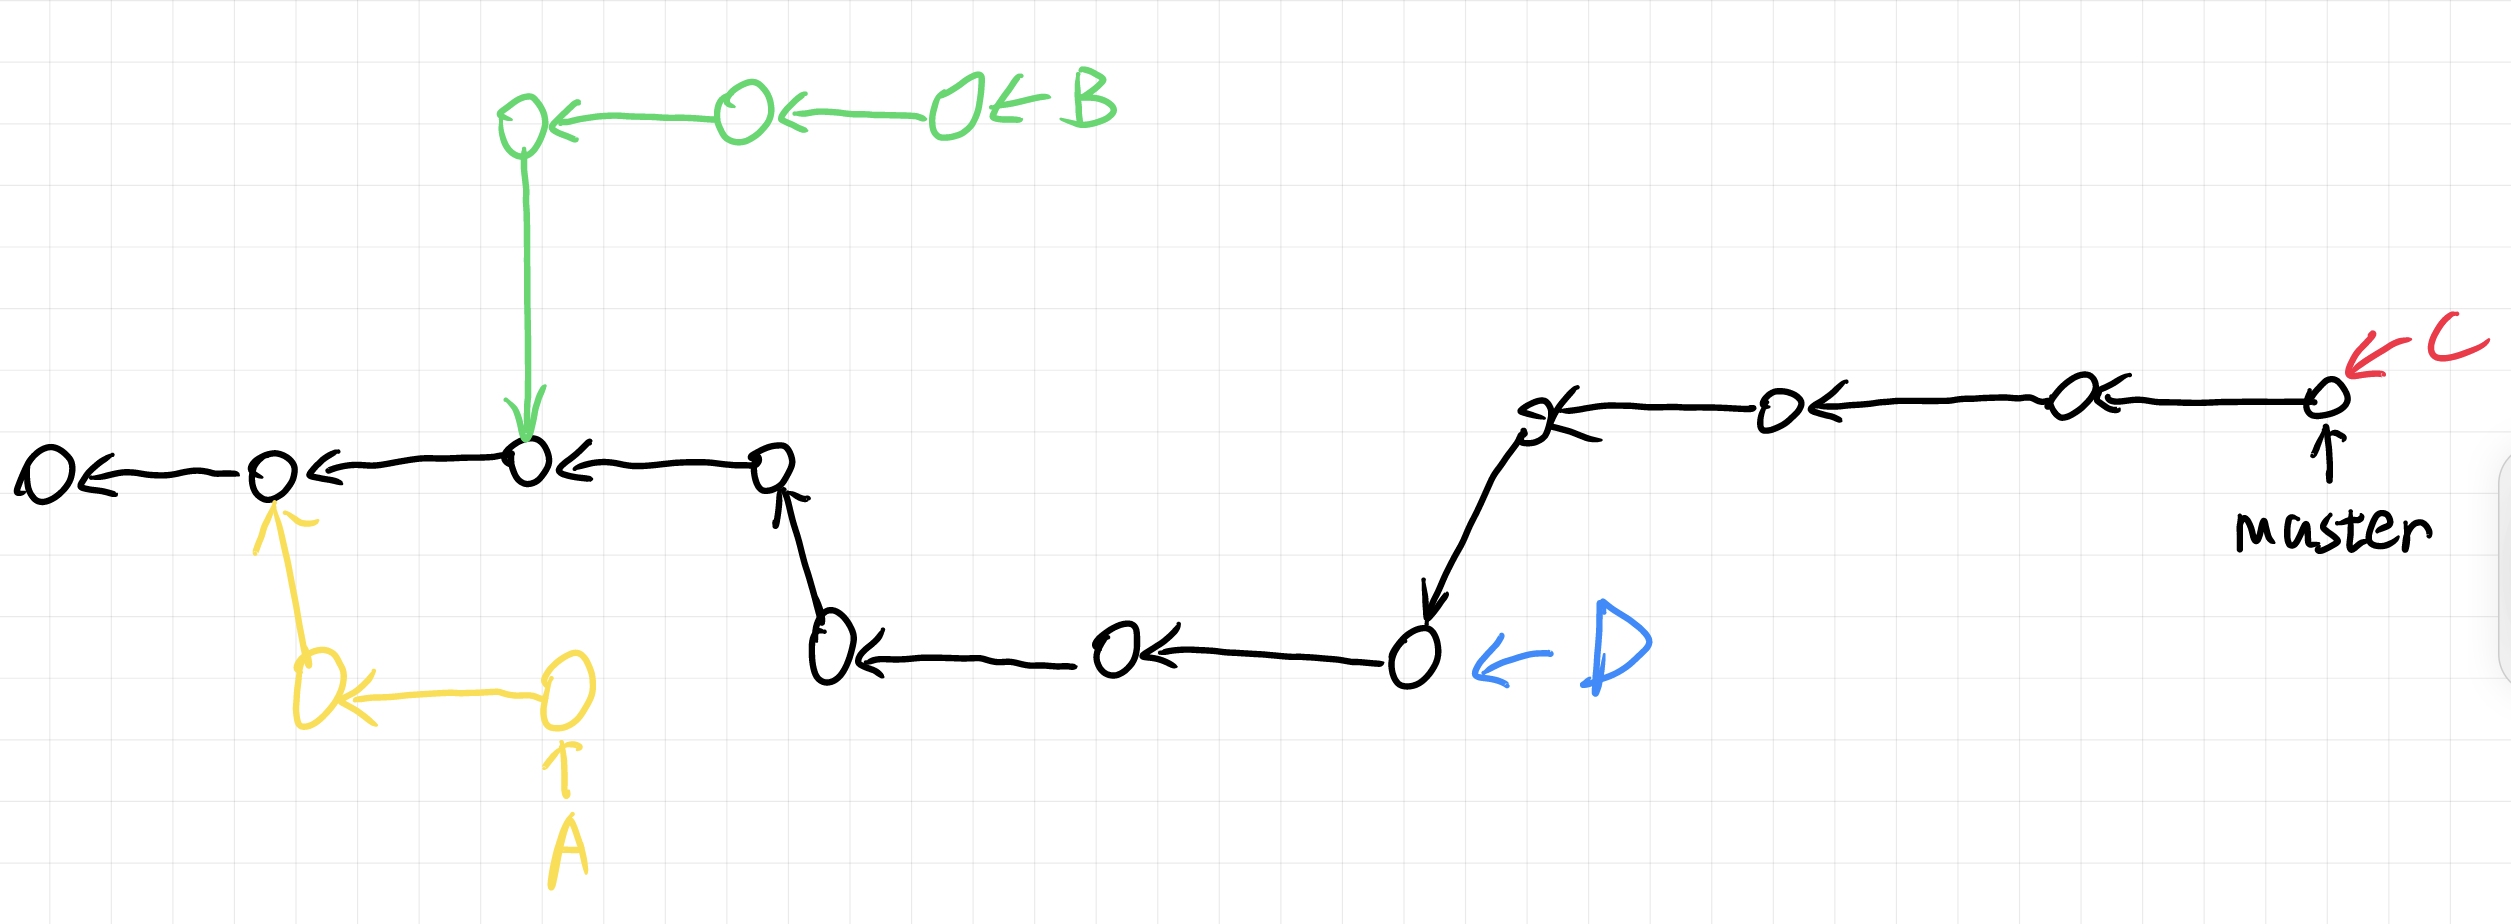 B
C
master
D
A